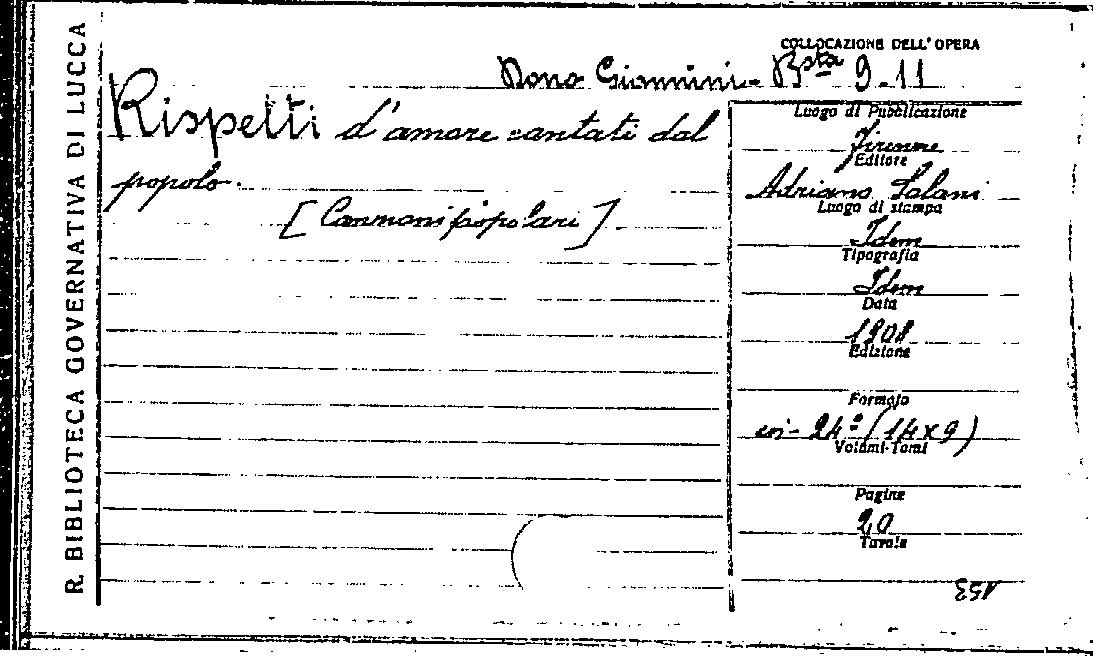 R. BIBLIOTECA GOVERNATIVA DI LUCCA
COLLOCAZIONE DELL'OPERA
Dono Giannini - Bsta 9-11
Rispetti d'amore cantati dal
popolo.
[Canzoni popolari]
Luogo di Pubblicazione
Firenze
Editore
Adriano Salani
Luogo di stampa
Idem
Tipografia
Idem
Data
1908
Edizione
Formato
in-24° (14x9)
Volumi-Tomi
Pagine
20
Tavole
153